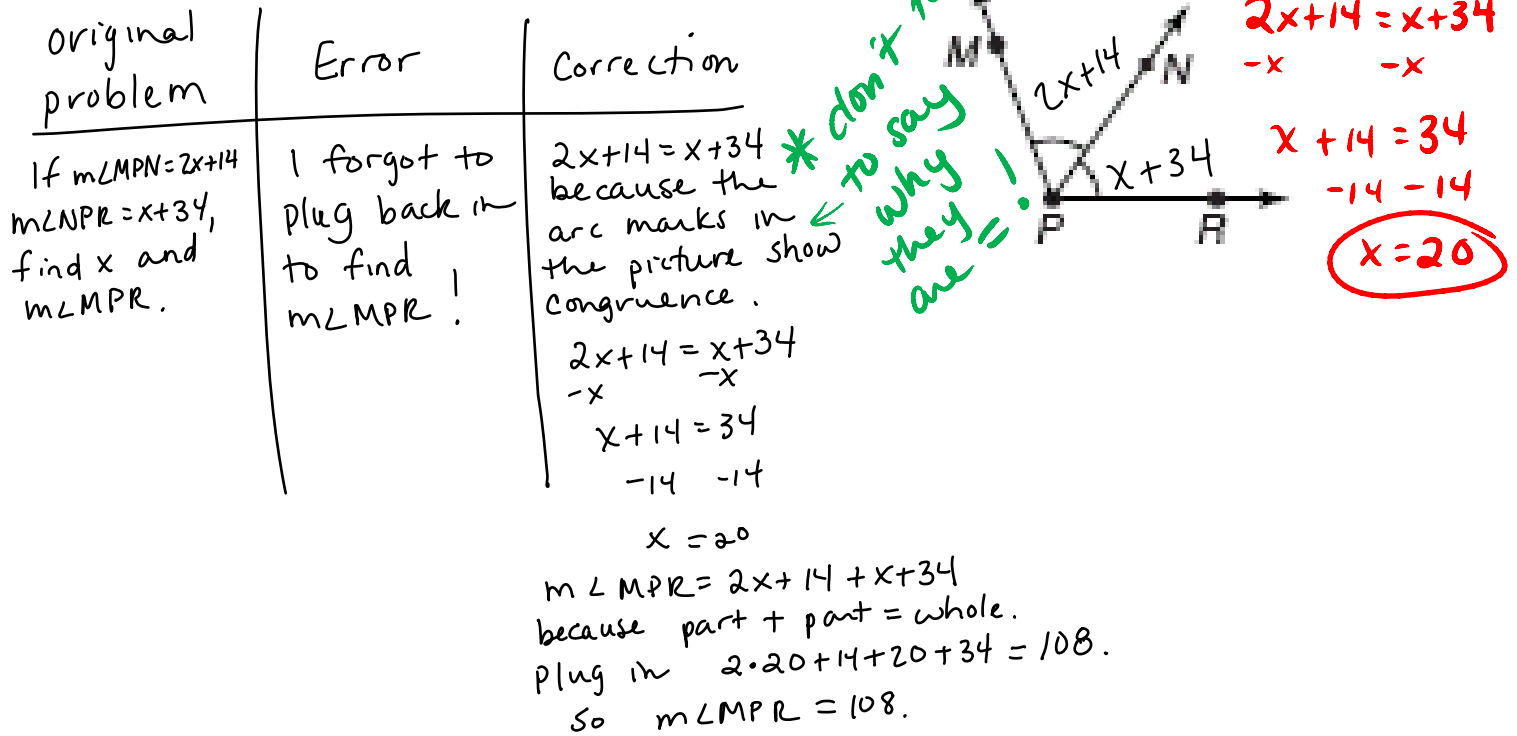 original
problem
Error
Correction
If m∠MPN=2x+14
m∠NPR=x+34,
find x and
m∠MPR.
I forgot to
plug back in
to find
m∠MPR!
2x+14=x+34
because the
arc marks in
the picture show
congruence.
2x+14=x+34
-x -x
x+14=34
-14 -14
x=20
m∠MPR=2x+14+x+34
because part + part = whole.
plug in 2•20+14+20+34=108.
so m∠MPR=108.
* don't
to say
why
they
are = !
M
N
2x+14
x+34
P
R
2x+14=x+34
-x -x
x+14=34
-14 -14
x=20